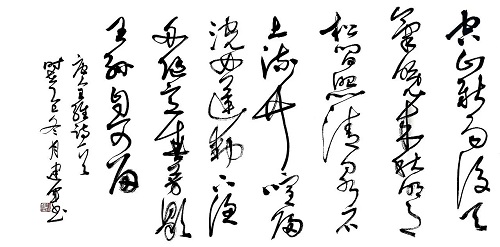 空山新雨後天
氣晚来秋明月
松間照清泉石
上流竹喧歸
浣女蓮動下漁
舟随意春芳歇
王孫自可留
唐人王維詩一首
冬月